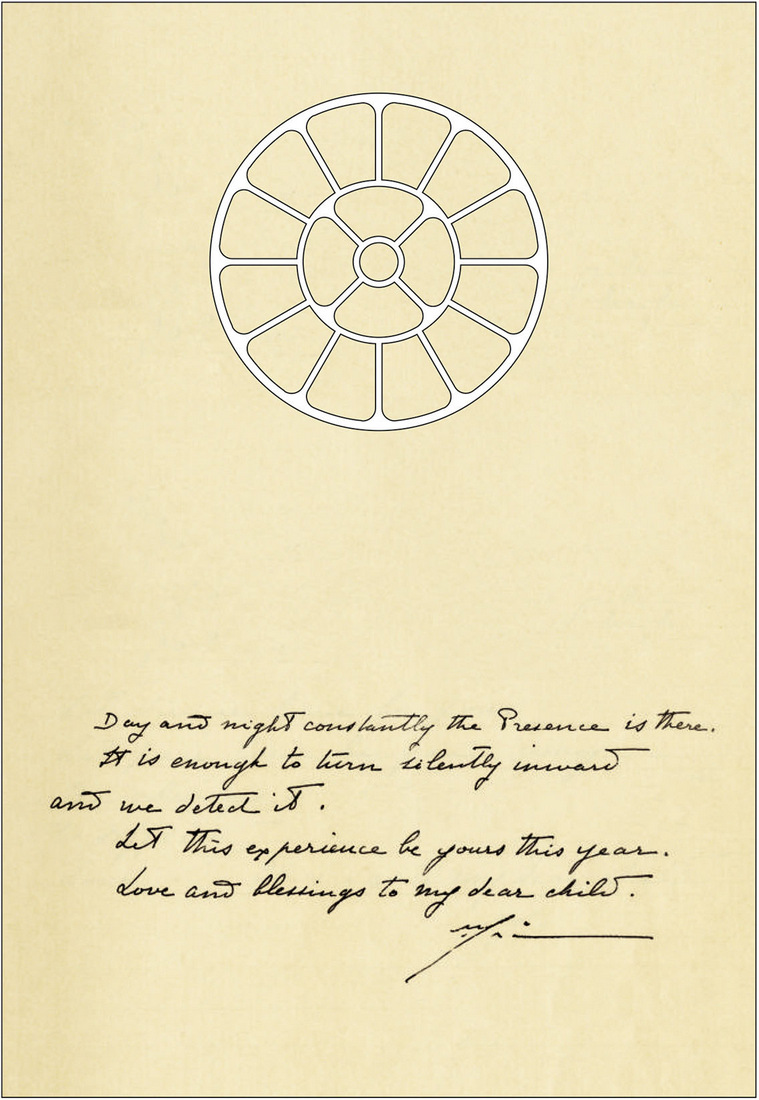 Day and night constantly the Presence is there.
It is enough to turn silently inward
and we detect it.
Let this experience be yours this year.
Love and blessings to my dear child.